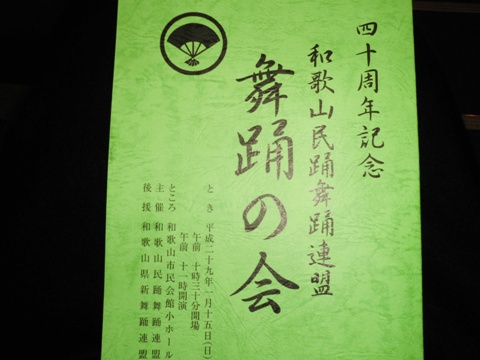 四十周年記念
和歌山民踊舞踊連盟
舞踊の会
とき 平成二十九年一月十五日(日)
午前 十時三十分開場
午前 十一時開演
ところ 和歌山市民会館小ホール
主催 和歌山民踊舞踊連盟
後援 和歌山県新舞踊連盟